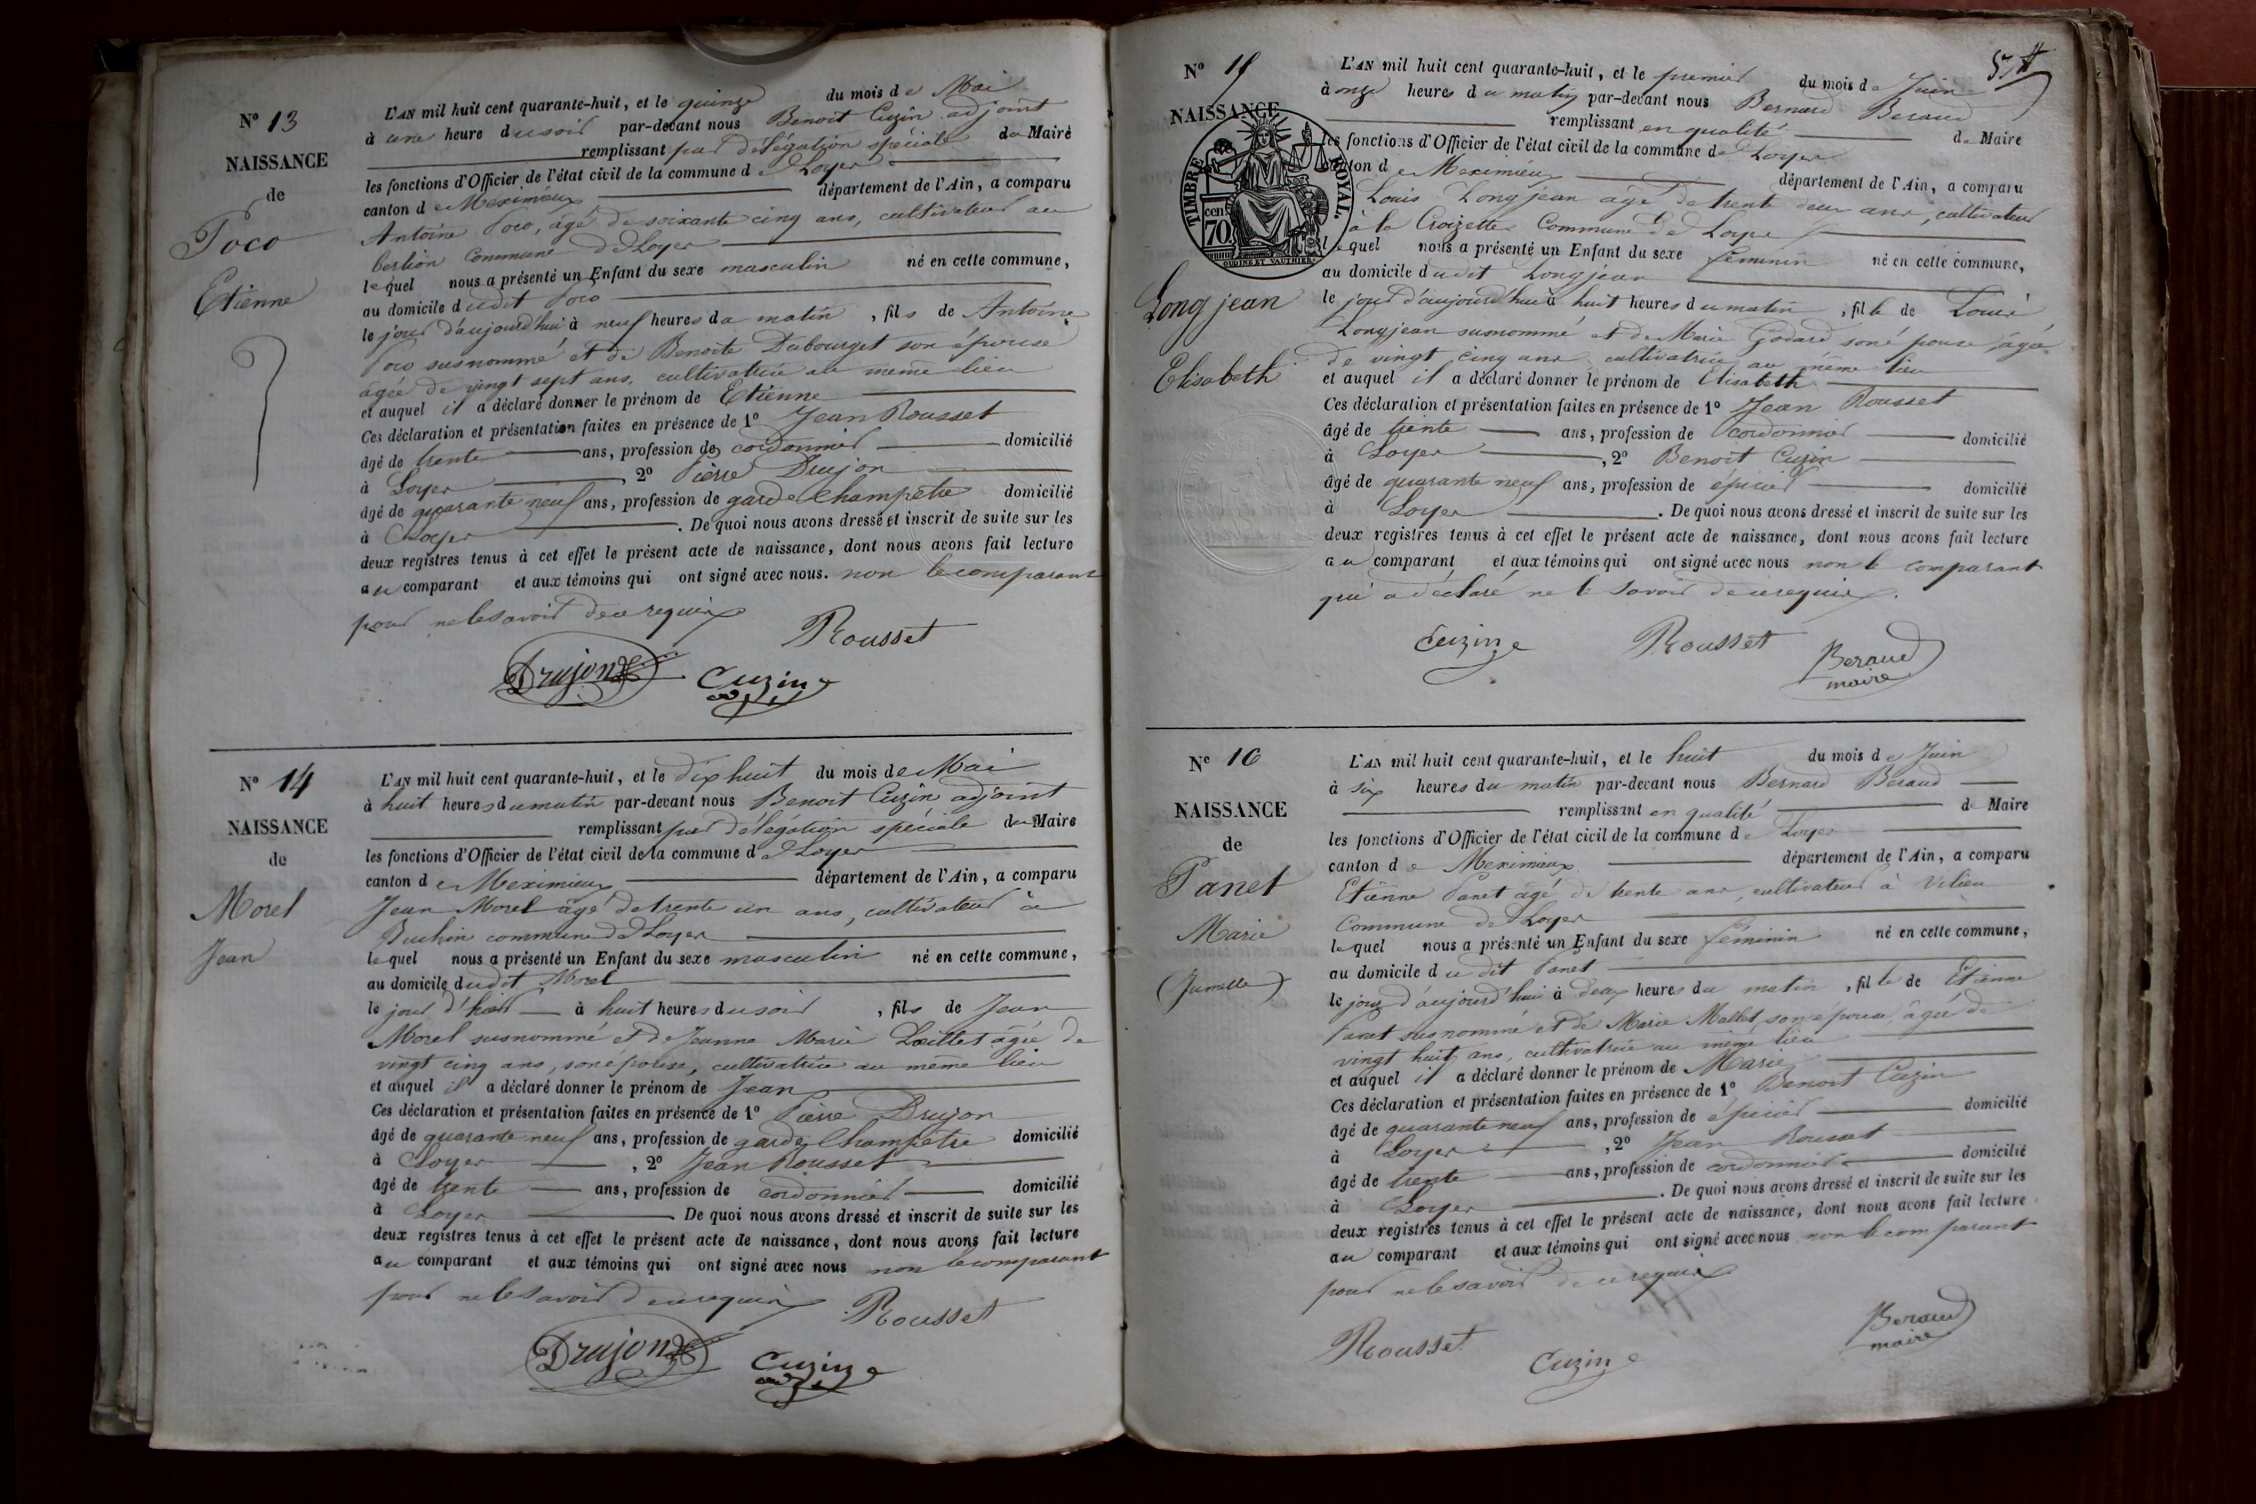 N° 13
NAISSANCE
de
Poco
Etienne
L'AN mil huit cent quarante-huit, et le quinze du mois de Mai
à une heure du soir par-devant nous Benoit Cuzin adjoint
remplissant par délégation spéciale du Maire
les fonctions d'Officier de l'état civil de la commune de Loyes
canton de Meximieux département de l'Ain, a comparu
Antoine Poco, âgé de soixante cinq ans, cultivateur au
Commune de Loyes
lequel nous a présenté un Enfant du sexe masculin né en cette commune,
au domicile dudit Poco
le jour d'aujourd'hui à neuf heures du matin, fils de Antoine
Poco susnommé et de Benoite Dubourget son épouse
âgée de vingt sept ans, cultivatrice au même lieu
et auquel il a déclaré donner le prénom de Etienne
Ces déclaration et présentation faites en présence de 1° Jean Rousset
âgé de trente ans, profession de cordonnier domicilié
à Loyes, 2° Pierre Drujon
âgé de quarante neuf ans, profession de garde Champêtre domicilié
à Loyes. De quoi nous avons dressé et inscrit de suite sur les
deux registres tenus à cet effet le présent acte de naissance, dont nous avons fait lecture
au comparant et aux témoins qui ont signé avec nous. non le comparant
pour ne le savoir de ce requis
Rousset
Drujon Cuzin
N° 14
NAISSANCE
de
Morel
Jean
L'AN mil huit cent quarante-huit, et le dix huit du mois de Mai
à huit heures du matin par-devant nous Benoit Cuzin adjoint
remplissant par délégation spéciale du Maire
les fonctions d'Officier de l'état civil de la commune de Loyes
canton de Meximieux département de l'Ain, a comparu
Jean Morel âgé de trente un ans, cultivateur à
Buchin commune de Loyes
lequel nous a présenté un Enfant du sexe masculin né en cette commune,
au domicile dudit Morel
le jour d'hier à huit heures du soir, fils de Jean
Morel susnommé et de Jeanne Marie Loeillet âgée de
vingt cinq ans, son épouse, cultivatrice au même lieu
et auquel il a déclaré donner le prénom de Jean
Ces déclaration et présentation faites en présence de 1° Pierre Drujon
âgé de quarante neuf ans, profession de garde Champêtre domicilié
à Loyes, 2° Jean Rousset
âgé de trente ans, profession de cordonnier domicilié
à Loyes De quoi nous avons dressé et inscrit de suite sur les
deux registres tenus à cet effet le présent acte de naissance, dont nous avons fait lecture
au comparant et aux témoins qui ont signé avec nous non le comparant
pour ne le savoir de ce requis
Rousset
Drujon Cuzin
57
N° 15
NAISSANCE
TIMBRE ROYAL.
70 cen.
OUDINE ET VAUTHIER
Longjean
Elisabeth
L'AN mil huit cent quarante-huit, et le premier du mois de Juin
à onze heures du matin par-devant nous Bernard Beraud
remplissant en qualité de Maire
les fonctions d'Officier de l'état civil de la commune de Loyes
canton de Meximieux département de l'Ain, a comparu
Louis Longjean âgé de trente deux ans, cultivateur
à la Croizette Commune de Loyes
lequel nous a présenté un Enfant du sexe féminin né en cette commune,
au domicile dudit Longjean
le jour d'aujourd'hui à huit heures du matin, fille de Louis
Longjean susnommé et de Marie Godard son épouse âgée
de vingt cinq ans, cultivatrice au même lieu
et auquel il a déclaré donner le prénom de Elisabeth
Ces déclaration et présentation faites en présence de 1° Jean Rousset
âgé de trente ans, profession de cordonnier domicilié
à Loyes, 2° Benoit Cuzin
âgé de quarante neuf ans, profession de épicier domicilié
à Loyes. De quoi nous avons dressé et inscrit de suite sur les
deux registres tenus à cet effet le présent acte de naissance, dont nous avons fait lecture
au comparant et aux témoins qui ont signé avec nous non le comparant
qui a déclaré ne le savoir de ce requis.
Cuzin Rousset Beraud
maire
N° 16
NAISSANCE
de
Panet
Marie
(Jumelle)
L'AN mil huit cent quarante-huit, et le huit du mois de Juin
à six heures du matin par-devant nous Bernard Beraud
remplissant en qualité de Maire
les fonctions d'Officier de l'état civil de la commune de Loyes
canton de Meximieux département de l'Ain, a comparu
Etienne Panet âgé de trente ans, cultivateur à Vilieu
Commune de Loyes
lequel nous a présenté un Enfant du sexe féminin né en cette commune,
au domicile du dit Panet
le jour d'aujourd'hui à deux heures du matin, fille de Etienne
Panet susnommé et de Marie Mallet son épouse, âgée de
vingt huit ans, cultivatrice au même lieu
et auquel il a déclaré donner le prénom de Marie
Ces déclaration et présentation faites en présence de 1° Benoit Cuzin
âgé de quarante neuf ans, profession de épicier domicilié
à Loyes, 2° Jean Rousset
âgé de trente ans, profession de cordonnier domicilié
à Loyes. De quoi nous avons dressé et inscrit de suite sur les
deux registres tenus à cet effet le présent acte de naissance, dont nous avons fait lecture
au comparant et aux témoins qui ont signé avec nous non le comparant
pour ne le savoir de ce requis
Rousset Cuzin Beraud
maire